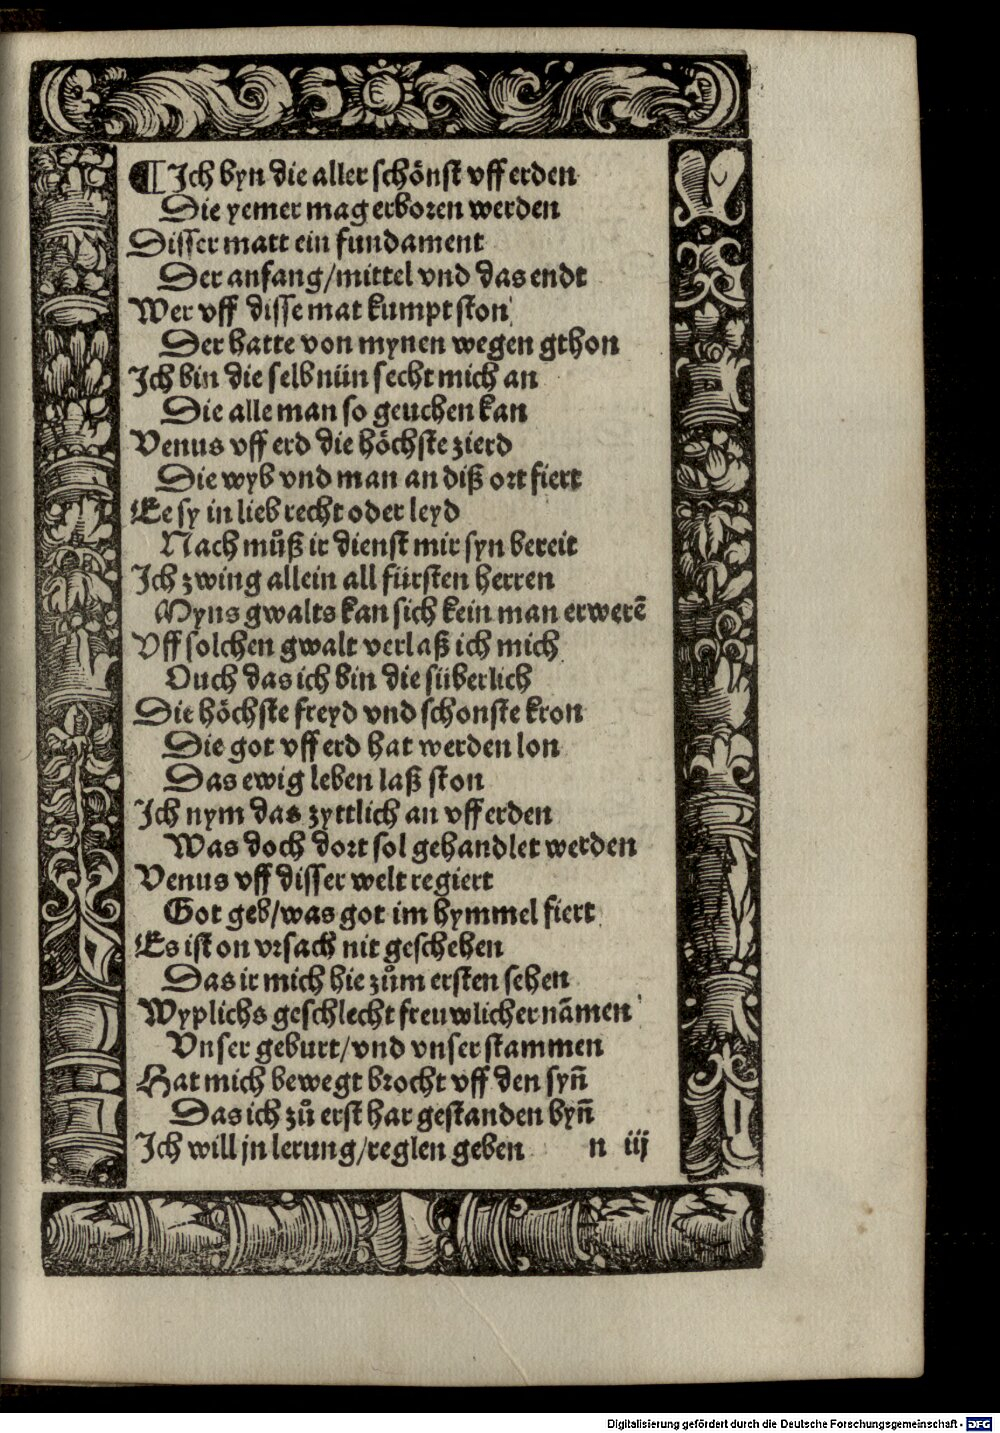 ¶ Ich byn die aller schönst vff erden
Die yemer mag erboren werden
Disser matt ein fundament
Der anfang/mittel vnd das endt
Wer vff disse mat kumpt ston
Der hatte von mynen wegen gthon
Ich bin die selb nün secht mich an
Die alle man so geuchen kan
Venus vff erd die höchste zierd
Die wyb vnd man an diß ort fiert
Ee sy in lieb recht oder leyd
Nach můß ir dienst mir syn bereit
Ich zwing allein all fürsten herren
Myns gwalts kan sich kein man erwerē
Vff solchen gwalt verlaß ich mich
Ouch das ich bin die süberlich
Die höchste freyd vnd schonste kron
Die got vff erd hat werden lon
Das ewig leben laß ston
Ich nym das zyttlich an vff erden
Was doch dort sol gehandlet werden
Venus vff disser welt regiert
Got geb/was got im hymmel fiert
Es ist on vrsach nit geschehen
Das ir mich hie zům ersten sehen
Wyplichs geschlecht freuwlicher nāmen
Vnser geburt/vnd vnser stammen
Hat mich bewegt brocht vff den syn̄
Das ich zů erst har gestanden byn̄
Ich will jn lerung/reglen geben n iij
Digitalisierung gefördert durch die Deutsche Forschungsgemeinschaft - DFG